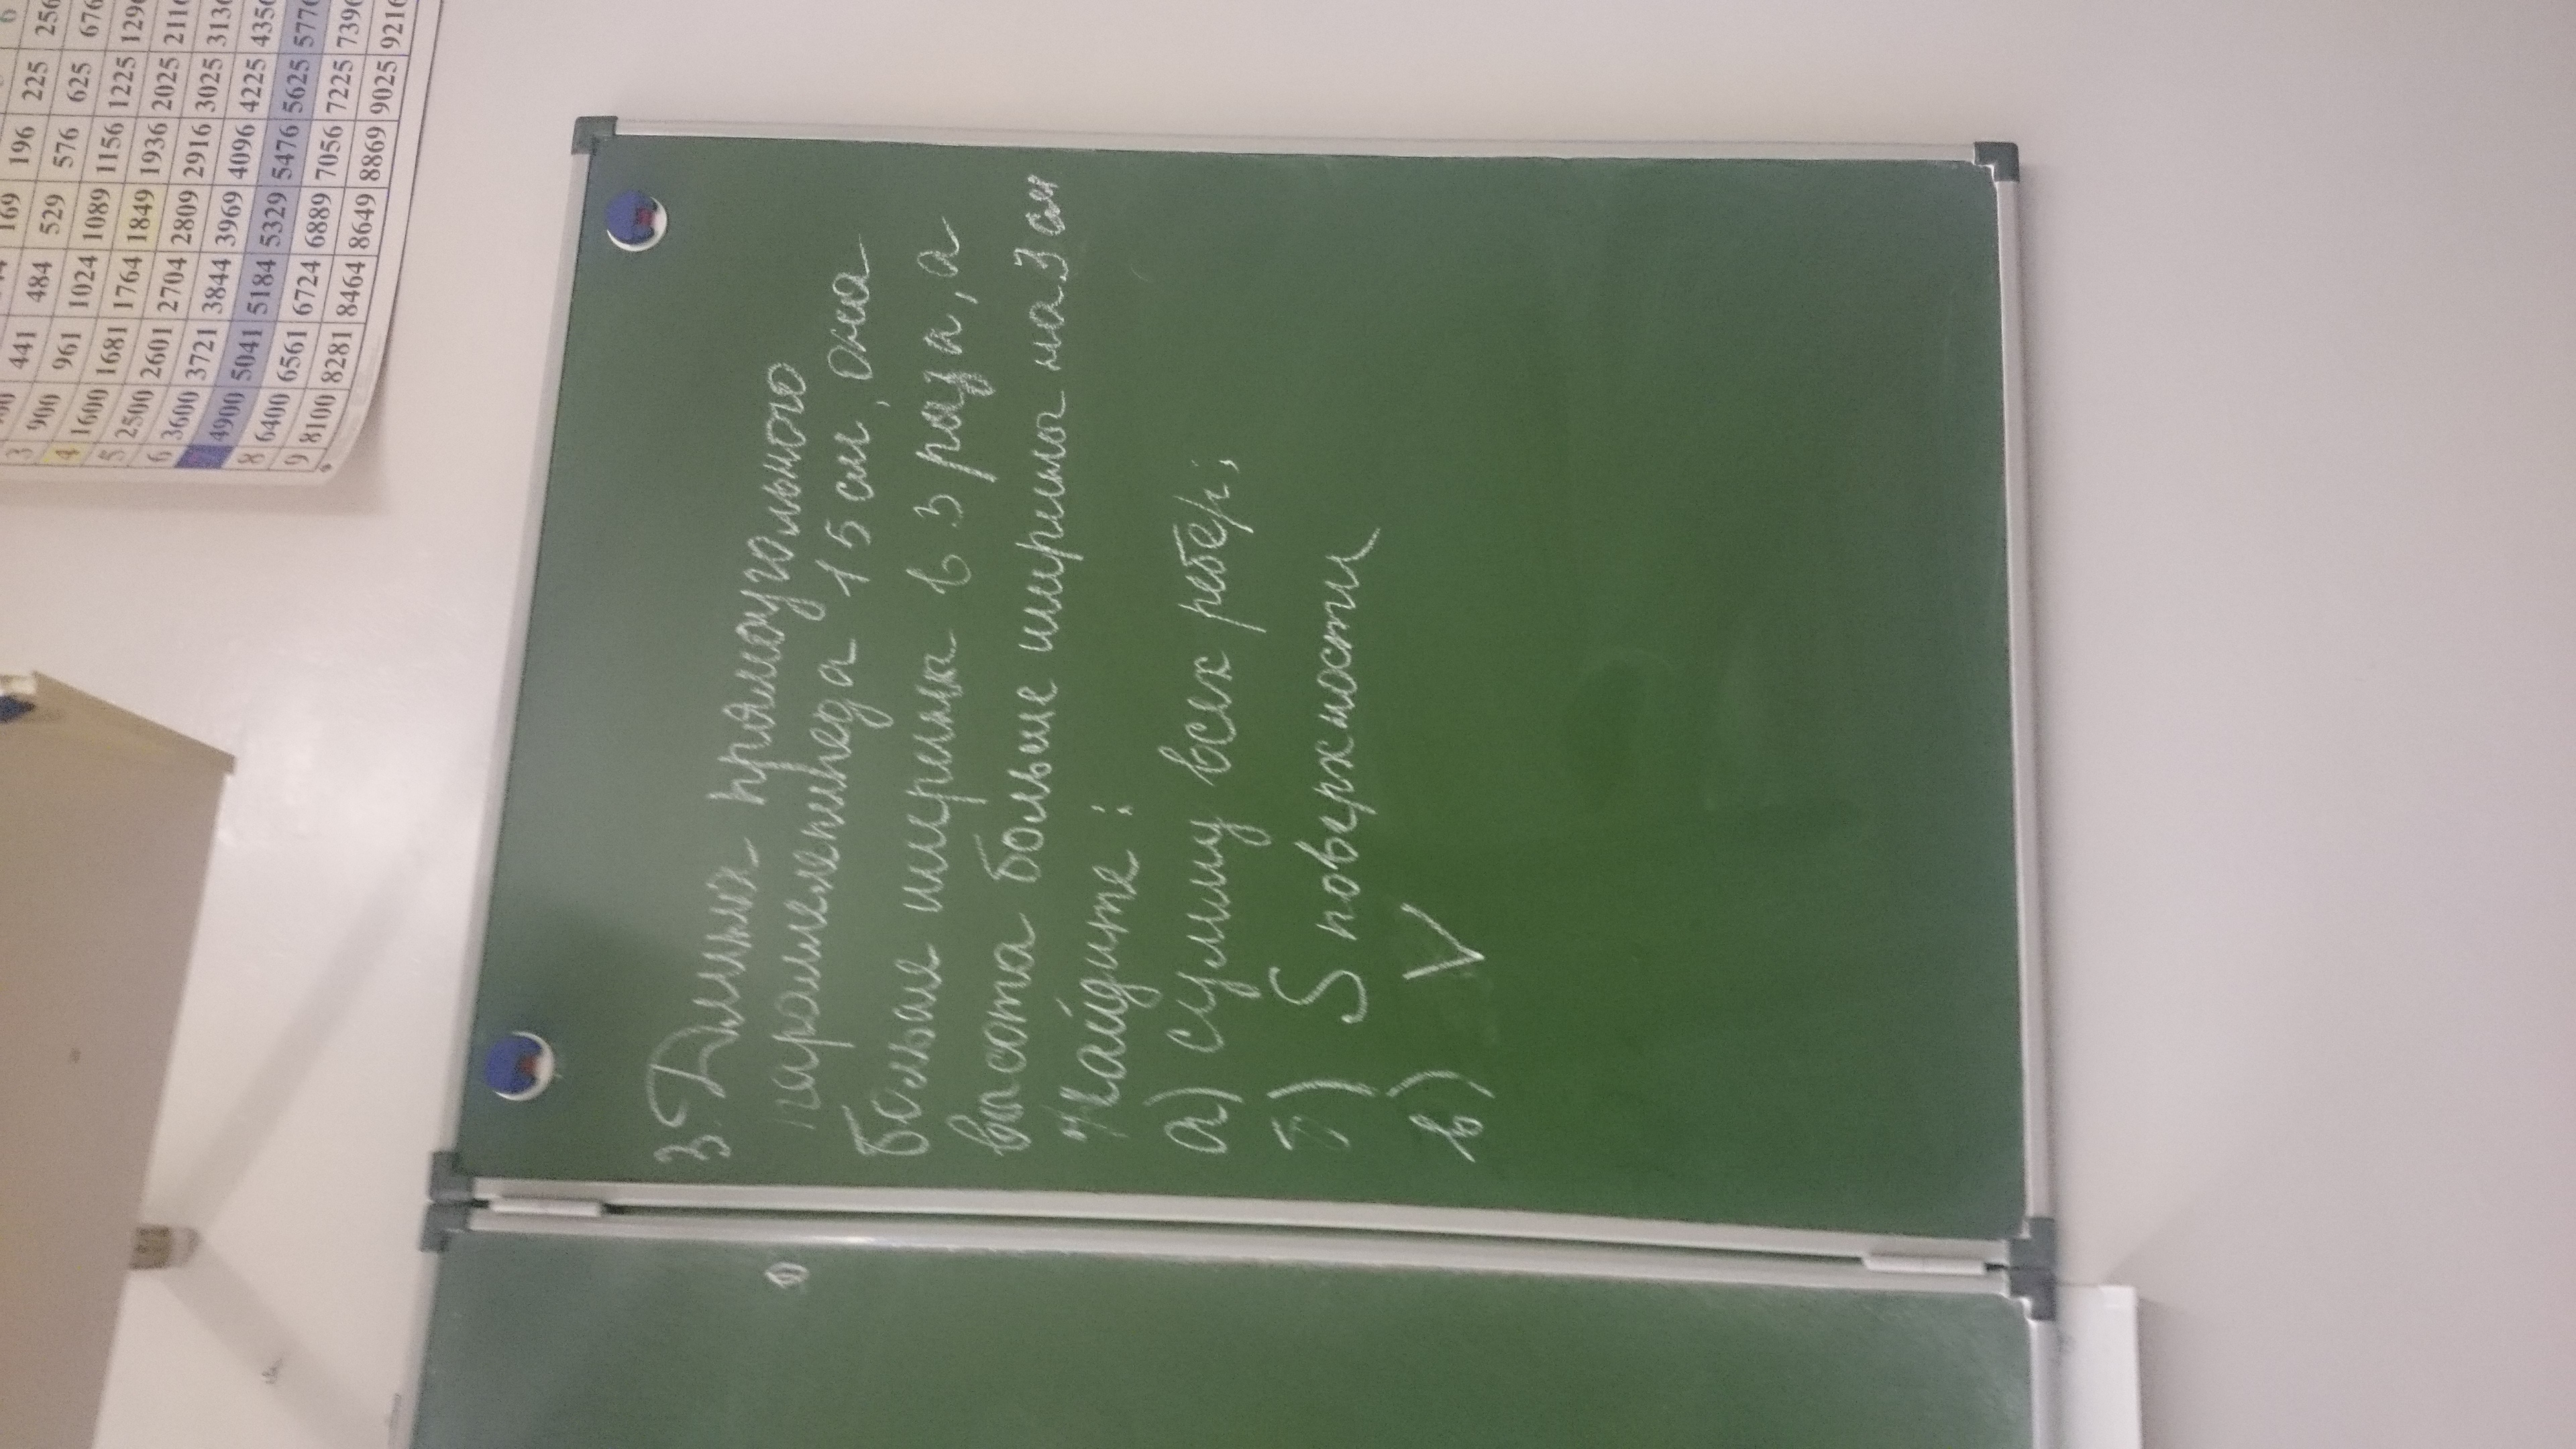 3. Длина прямоугольного
параллелепипеда 15 см, она
больше ширины в 3 раза, а
высота больше ширины на 3 см
Найдите:
а) сумму всех ребер;
б) S поверхности
в) V
169
196 225 256
441 484 529 576 625 676
900 961 1024 1089 1156 1225
1600 1681 1764 1849 1936 2025
2500 2601 2704 2809 2916 3025
3600 3721 3844 3969 4096 4225
4900 5041 5184 5329 5476 5625
6400 6561 6724 6889 7056 7225
8100 8281 8464 8649 8869 9025
3
4
5
6
7
8
9